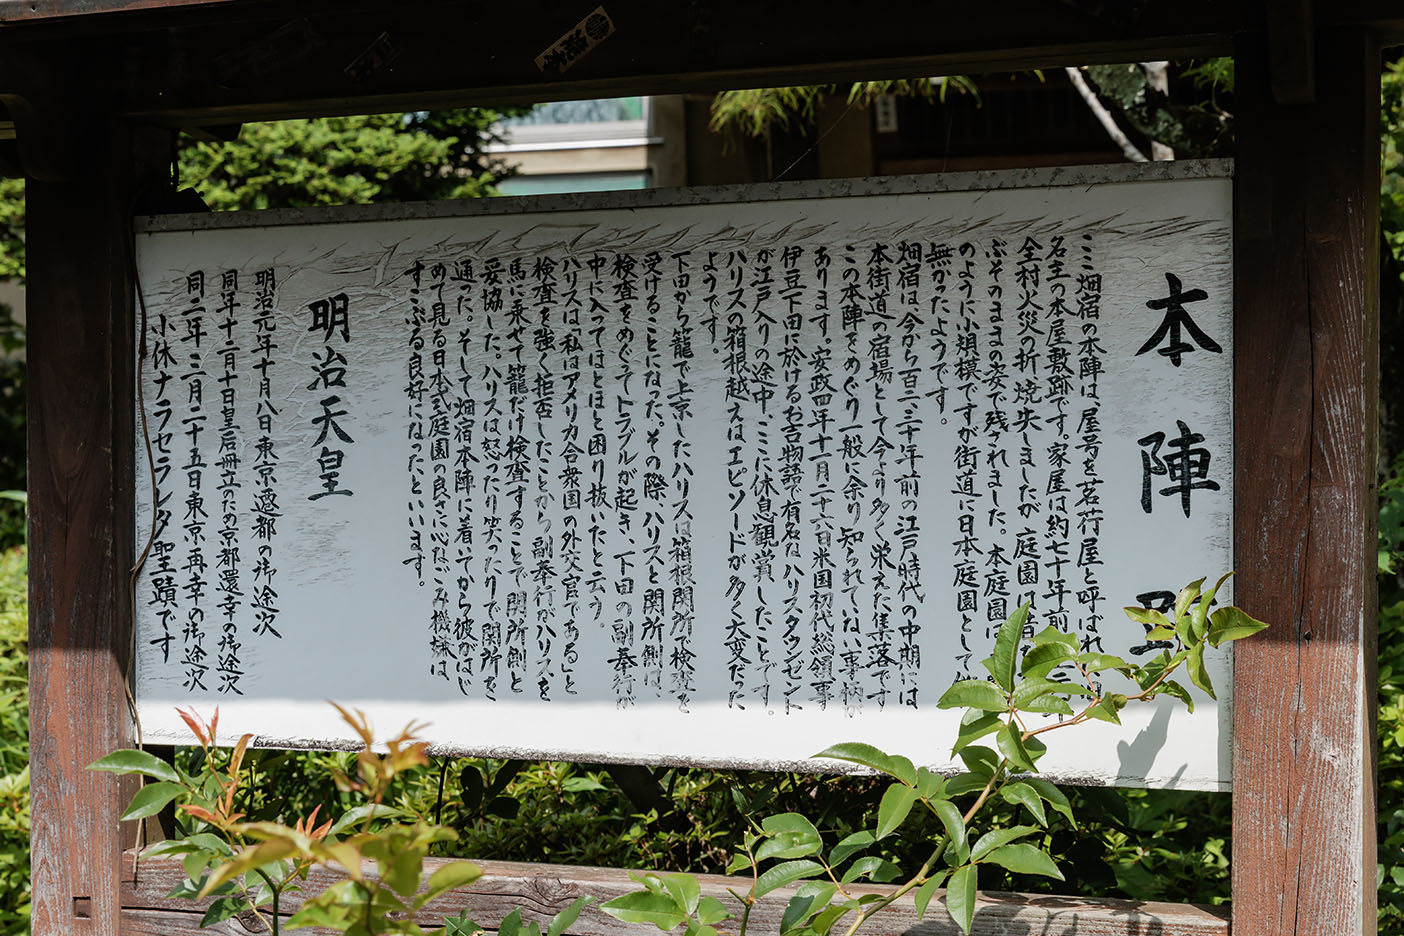 本陣跡
ここ畑宿の本陣は、屋号を茗荷屋と呼ばれ
名主の本屋敷跡です。家屋は約七十年前
全村火災の折焼失しましたが、庭園は昔を
ぶそのままの姿で残されました。本庭園は
のように小規模ですが街道に日本庭園として
無かったようです。
畑宿は今から百二、三十年前の江戸時代の中期には
本街道の宿場として今より多く栄えた集落です
この本陣をめぐり一般に余り知られていない事柄が
あります。安政四年十一月二十六日米国初代総領事
伊豆下田に於けるお吉物語で有名なハリスタウンゼント
が江戸入りの途中、ここに休息観賞したことです。
ハリスの箱根越えはエピソードが多く大変だった
ようです。
下田から籠で上京したハリスは箱根関所で検査を
受けることになった。その際、ハリスと関所側は、
検査をめぐってトラブルが起き、下田の副奉行が
中に入ってほとほと困り抜いたと云う。
ハリスは「私はアメリカ合衆国の外交官である」と
検査を強く拒否したことから副奉行がハリスを
馬に乗せて籠だけ検査することで関所側と
妥協した。ハリスは怒ったり笑ったりで関所を
通った。そして畑宿本陣に着いてから彼がはじ
めて見る日本式庭園の良さに心なごみ機嫌は
すこぶる良好になったといいます。
明治天皇
明治元年十月八日東京遷都の御途次
同年十二月十日皇后冊立のため京都還幸の御途次
同二年三月二十五日東京再幸の御途次
小休ナラセランタ聖蹟です